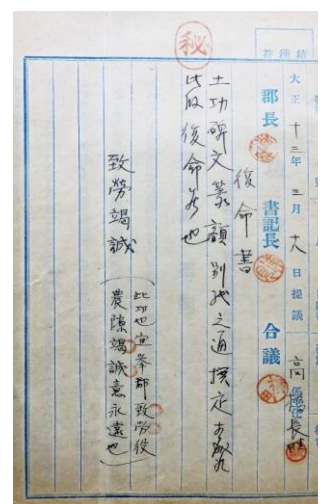 秘
大正十三年三月十八日提議
郡長 書記長 合議
復命書
土功碑文篆額別紙之通撰定
此段復命候也
致勞竭誠
此功也宜挙郡致労役
農隙竭誠意永遠也